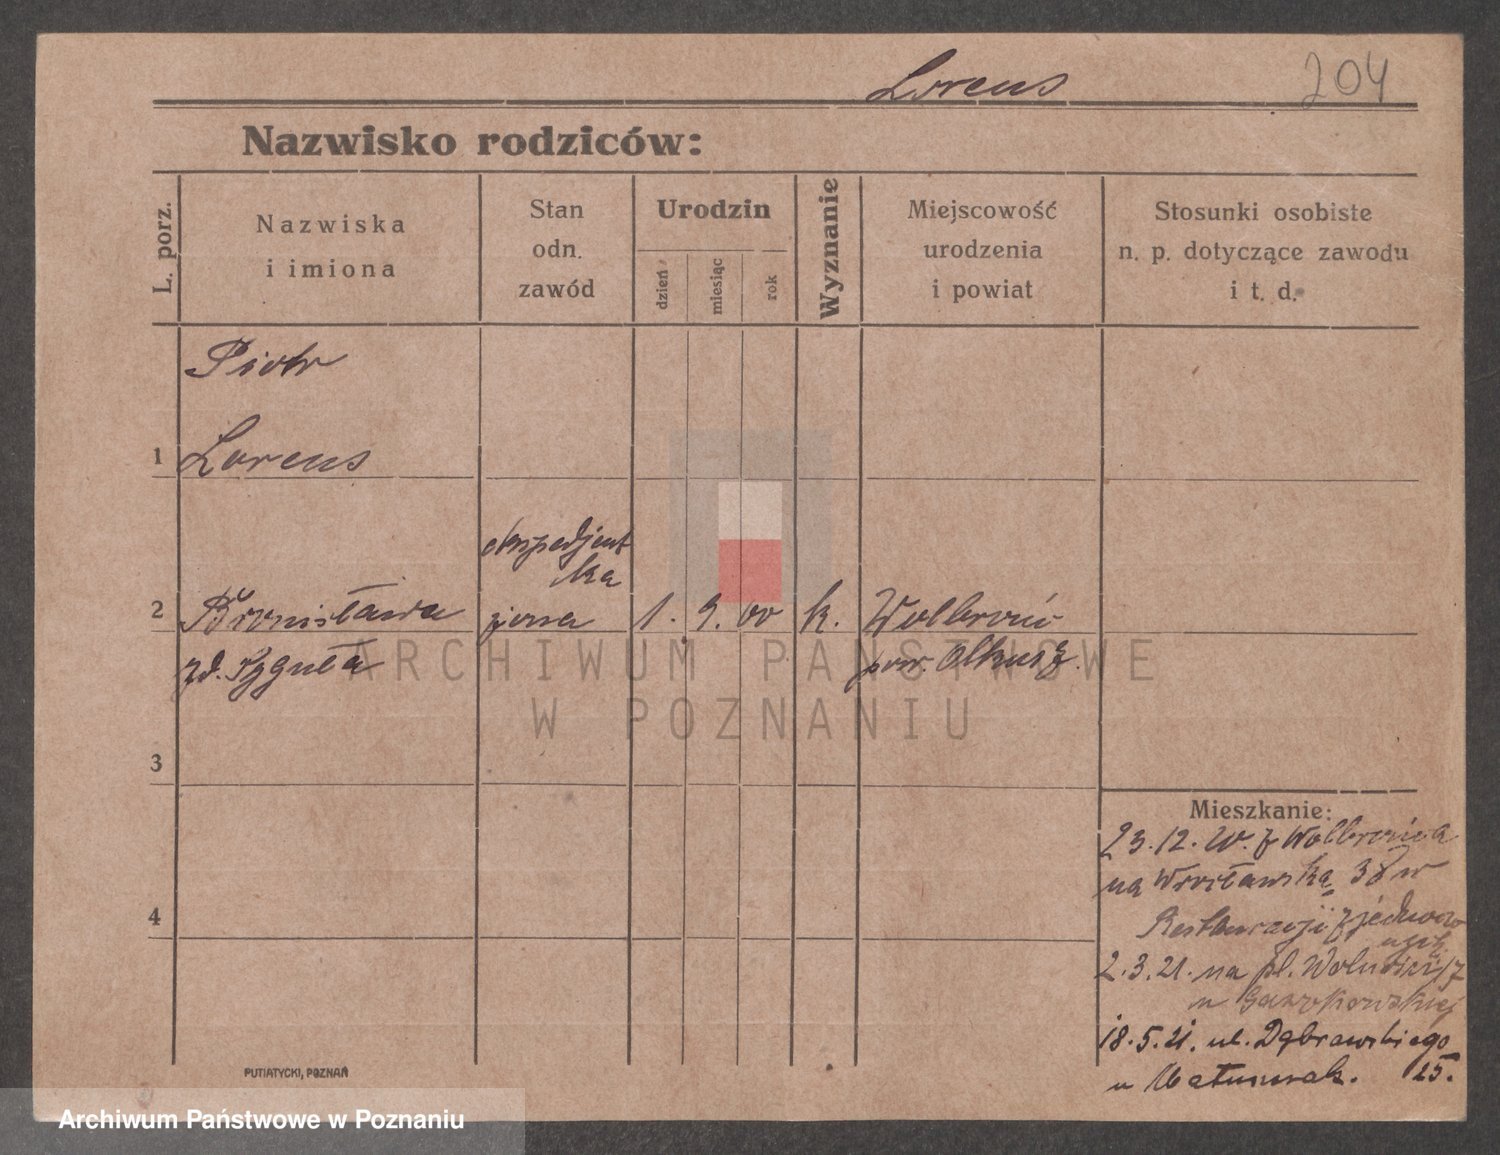 Lorens 204
Nazwisko rodziców:
L. porz.
Nazwiska
i imiona
Stan
odn.
zawód
Urodzin
dzień
miesiąc
rok
Wyznanie
Miejscowość
urodzenia
i powiat
Stosunki osobiste
n. p. dotyczące zawodu
i t. d.
Piotr
1 Lorens
ekspedjent
ka
2 Bronisława żona 1. 9. 00 k. Wolbrom
zd. pow. Olkusz.
ARCHIWUM PAŃSTWOWE
W POZNANIU
3
4
Mieszkanie:
23.12. 20. z Wolbromia
na Wrocławską 38 w
Restauracji
2.3.21. na pl. Wolności 17
u
18.5.21. ul. Dąbrowskiego
u 25.
PUTIATYCKI, POZNAŃ
Archiwum Państwowe w Poznaniu